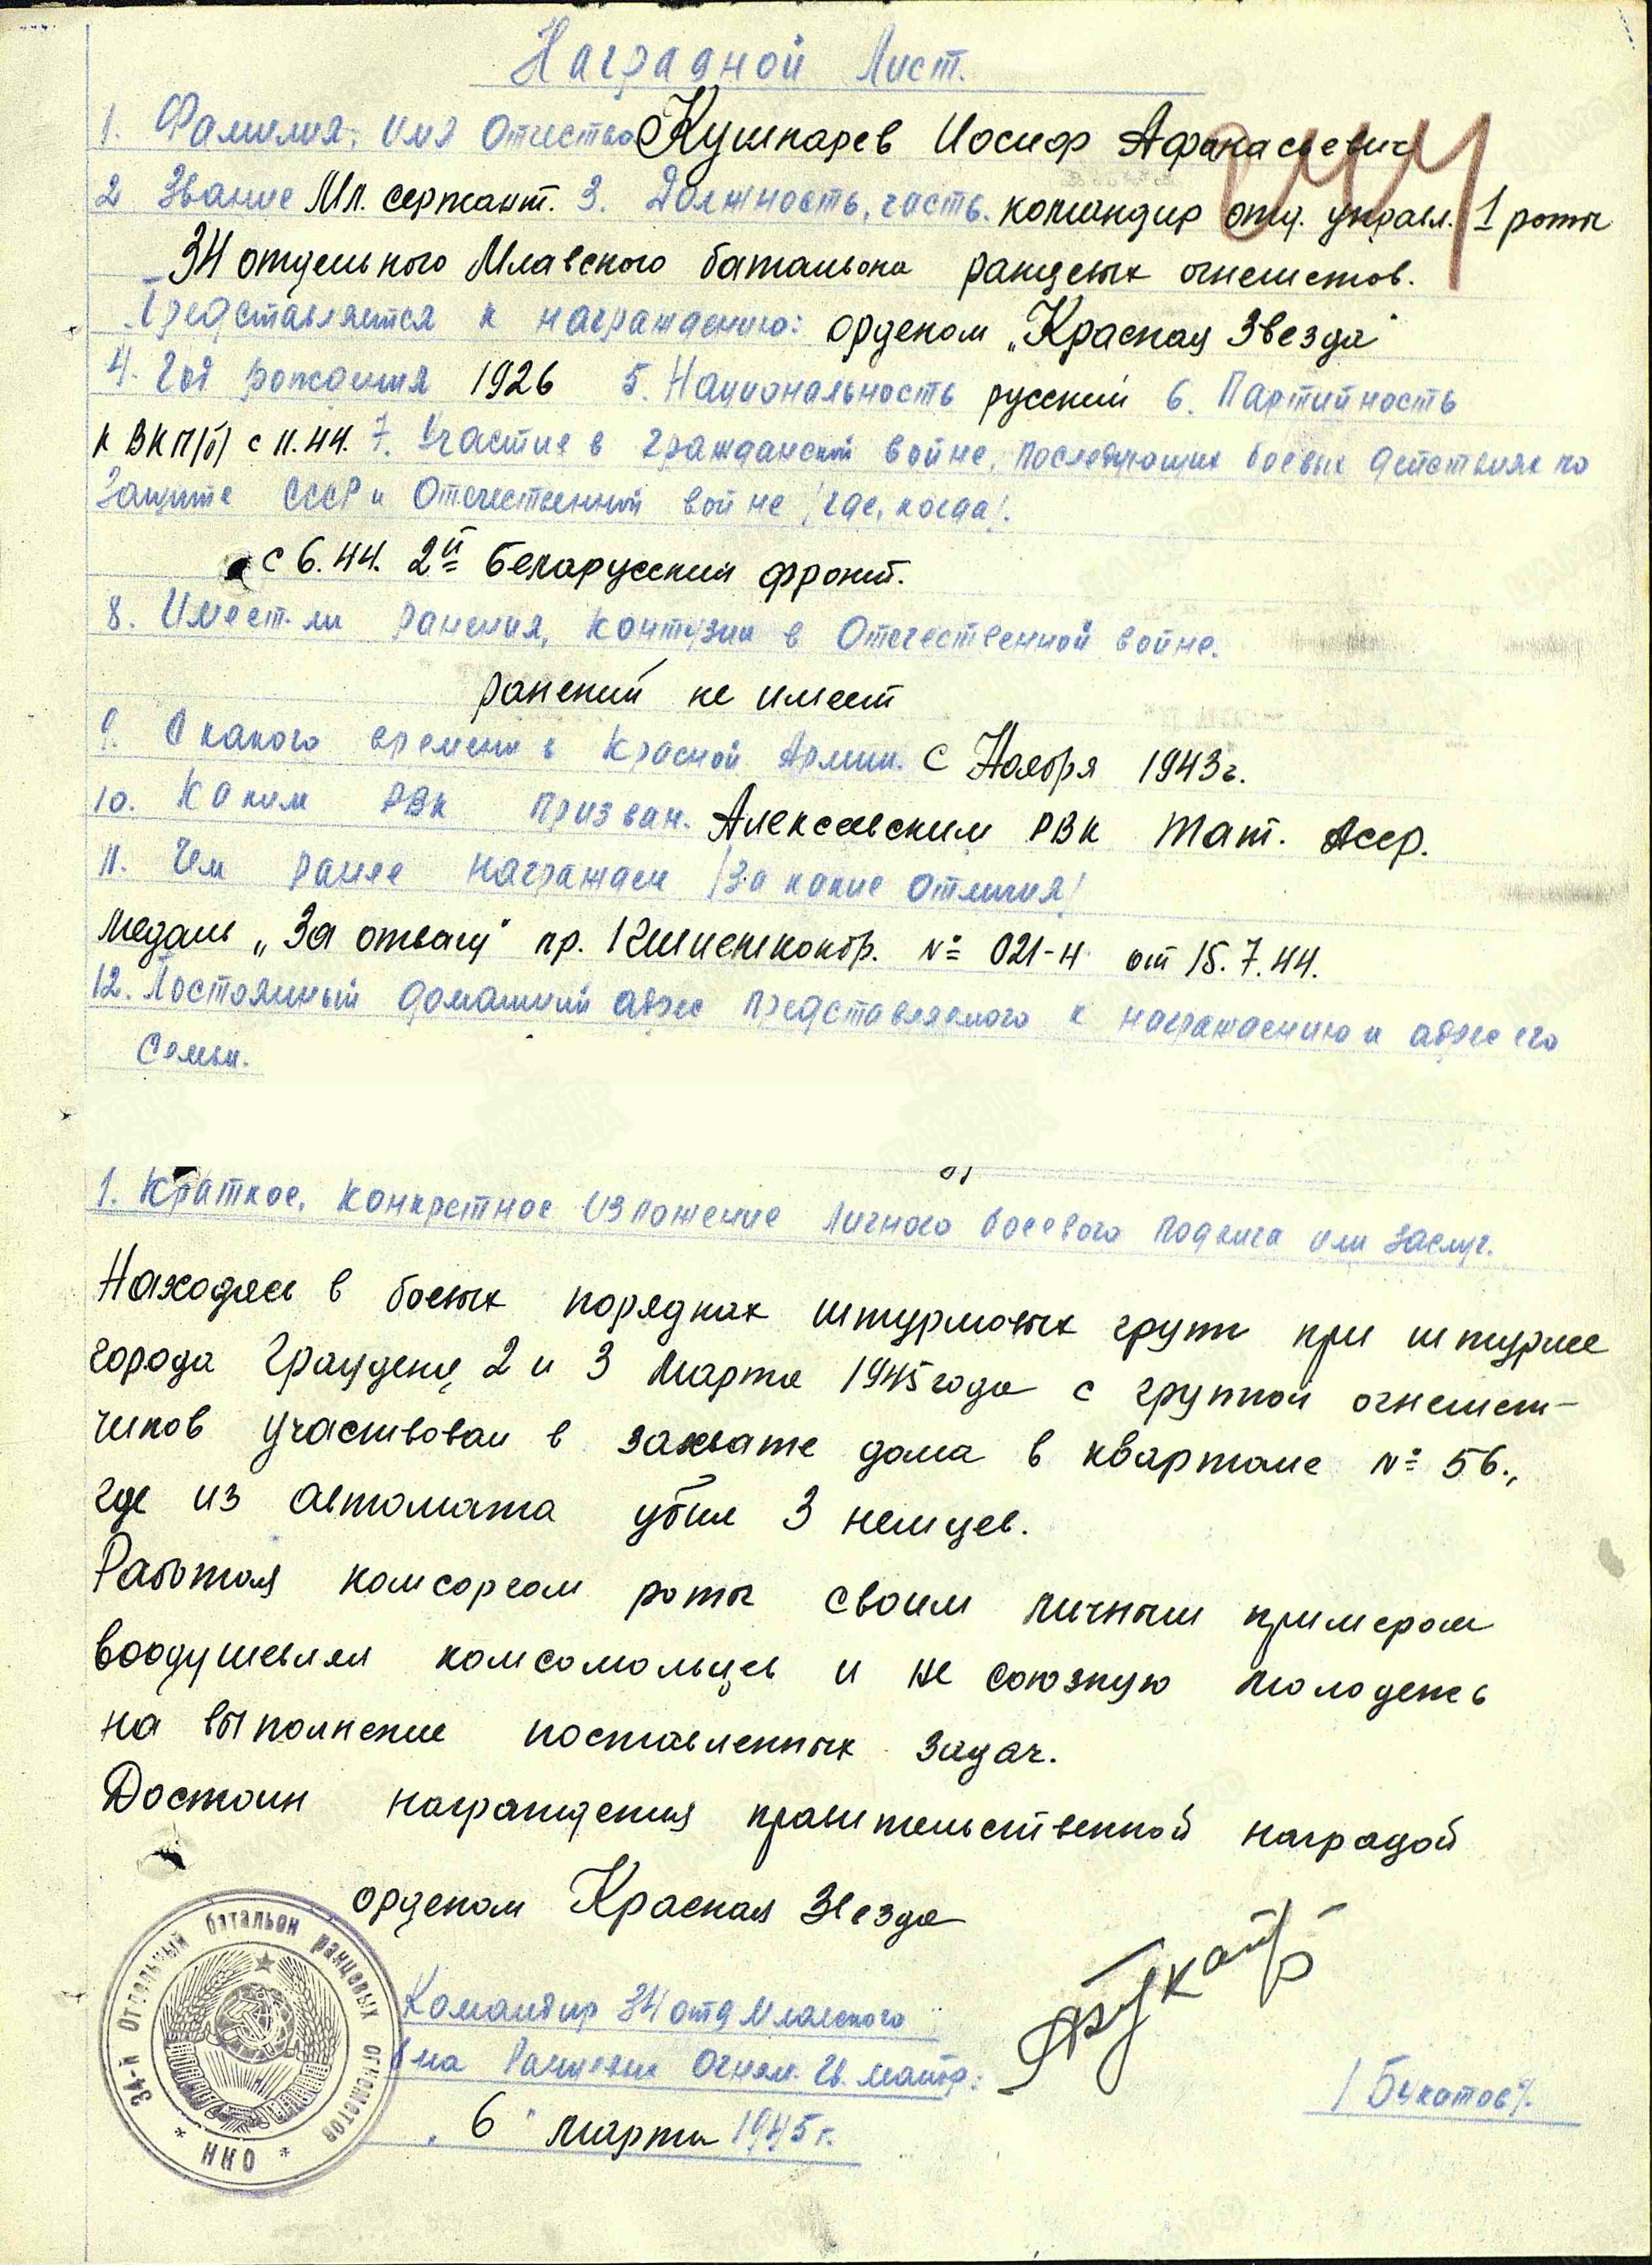 Наградной Лист.
1. Фамилия, имя Отчество Кушнарев Иосиф Афанасьевич
2 Звание Мл. сержант. 3. Должность, часть. командир отд. управл. 1 роты
34 отдельного Млавского батальона ранцевых огнеметов.
Представляется к награждению: орденом „Красная Звезда"
4. Год рождения 1926 5. Национальность русский 6. Партийность
к ВКП(б) с 11.44. 7. Участие в гражданской войне, последующих боевых действиях по
Защите СССР и Отечественной войне /где, когда/.
с 6.44. 2й Беларусский фронт.
8. Имеет-ли ранения, контузии в Отечественной войне.
ранений не имеет
9. С какого времени в Красной Армии. с Ноября 1943г.
10. Каким РВК призван. Алексеевским РВК Тат. Асср.
11. Чем ранее награжден /за какие отличия/
медаль „За отвагу" пр. № 021-н от 15.7.44.
12. Постоянный домашний адрес представляемого к награждению и адрес его
Семьи.
1. Краткое, конкретное изложение личного боевого подвига или заслуг.
Находясь в боевых порядках штурмовых групп при штурме
города Грауденц 2 и 3 Марта 1945 года с группой огнемет-
чиков участвовал в захвате дома в квартале № 56.,
где из автомата убил 3 немцев.
Работая комсоргом роты своим личным примером
воодушевлял комсомольцев и не союзную молодежь
на выполнение поставленных задач.
Достоин награждения правительственной наградой
орденом Красная Звезда
Командир 34 отд Млавского
б-на Ранцевых Огнем. Гв. майор:
/Букатов/.
„6" марта 1945 г.
34-й отдельный батальон ранцевых огнеметов
* НКО *